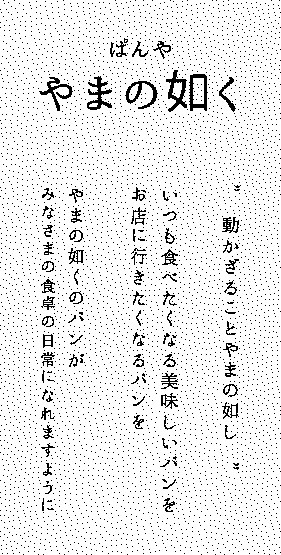 ぱんや
やまの如く
〝動かざることやまの如し〟
いつも食べたくなる美味しいパンを
お店に行きたくなるパンを
やまの如くのパンが
みなさまの食卓の日常になれますように